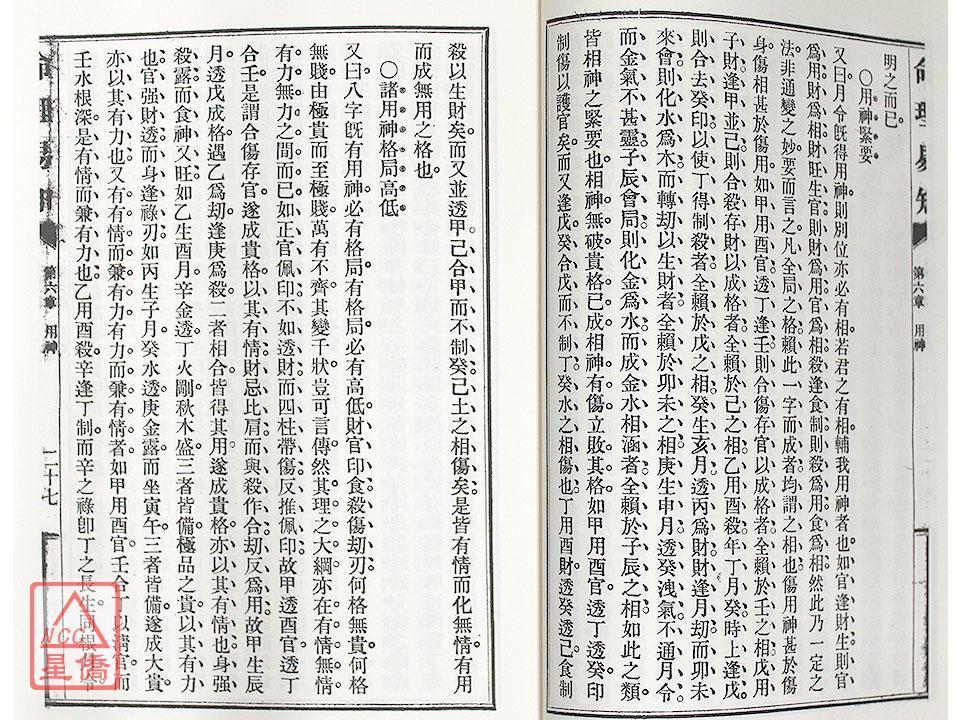 命理易知
第六章 用神
明之而已
○用神緊要
又曰月令旣得用神則別位亦必有相若君之有相輔我用神者也如官逢財生則官
爲用財爲相財旺生官則財爲用官爲相殺逢食制則殺爲用食爲相然此乃一定之
法非通變之妙要而言之凡全局之格賴此一字而成者均謂之相也傷用神甚於傷
身傷相甚於傷用如甲用酉官透丁逢壬則合傷存官以成格者全賴於壬之相戊用
子財逢甲並己則合殺存財以成格者全賴於己之相乙用酉殺年丁月癸時上逢戊
則合去癸印以使丁得制殺者全賴於戊之相癸生亥月透丙爲財財逢月劫而卯未
來會則化水爲木而轉劫以生財者全賴於卯未之相庚生申月透癸洩氣不通月令
而金氣不甚靈子辰會局則化金爲水而成金水相涵者全賴於子辰之相如此之類
皆相神之緊要也相神無破貴格已成相神有傷立敗其格如甲用酉官透丁逢癸印
制傷以護官矣而又逢戊癸合戊而不制丁癸水之相傷也丁用酉財透癸逢己食制
殺以生財矣而又並透甲己合甲而不制癸己土之相傷矣是皆有情而化無情有用
而成無用之格也
○諸用神格局高低
又曰八字旣有用神必有格局有格局必有高低財官印食殺傷劫刃何格無貴何格
無賤由極貴而至極賤萬有不齊其變千狀豈可言傳然其理之大綱亦在有情無情
有力無力之間而已如正官佩印不如透財而四柱帶傷反推佩印故甲透酉官透丁
合壬是謂合傷存官遂成貴格以其有情財忌比肩而與殺作合劫反爲用故甲生辰
月透戊成格遇乙爲劫逢庚爲殺二者相合皆得其用遂成貴格亦以其有情也身强
殺露而食神又旺如乙生酉月辛金透丁火剛秋木盛三者皆備極品之貴以其有力
也官强財透而身逢祿刃如丙生子月癸水透庚金露而坐寅午三者皆備遂成大貴
亦以其有力也又有有情而兼有力有力而兼有情者如甲用酉官壬合丁以淸官而
壬水根深是有情而兼有力也乙用酉殺辛逢丁制而辛之祿卽丁之長生同根
令
命理易知
第六章 用神
二十七
NCC
星僑